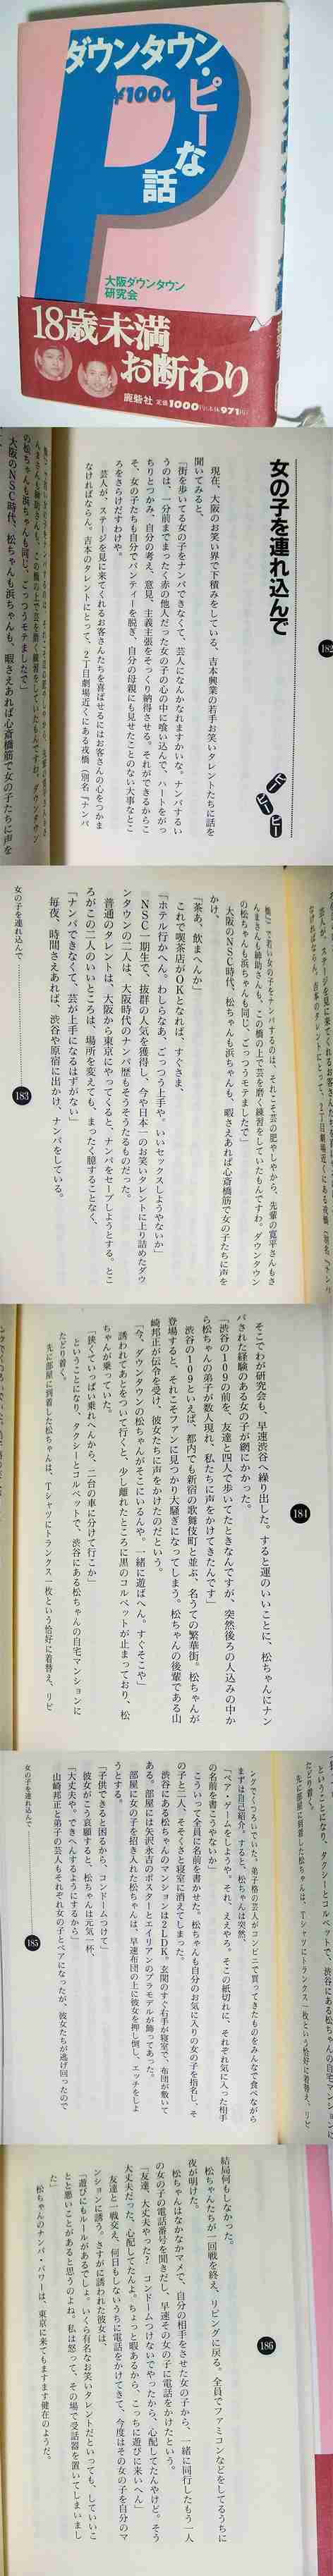 ダウンタウン・ピーな話
¥1000
P
大阪ダウンタウン
研究会
18歳未満
お断わり
鹿砦社 定価1000円(本体971円)
182
女の子を連れ込んで
ピー
ピー
ピー
現在、大阪のお笑い界で下積みをしている、吉本興業の若手お笑いタレントたちに話を
聞いてみると、
「街を歩いてる女の子をナンパできなくて、芸人になんかなれますかいな。ナンパするい
うのは、一分前までまったく赤の他人だった女の子の心の中に喰い込んで、ハートをがっ
ちりとつかみ、自分の考え、意見、主義主張をそっくり納得させる。それができるからこ
そ、女の子たちも自分でパンティーを脱ぎ、自分の母親にも見せたことのない大事なとこ
ろをさらけだすわけや。
芸人が、ステージを見に来てくれるお客さんたちを喜ばせるにはお客さんの心をつかま
なければならん。吉本のタレントにとって、2丁目劇場近くにある戎橋（別名『ナンパ
橋』）で若い女の子をナンパするのは、それこそ芸の肥やしやから、先輩の寛平さんもさ
んまさんも紳助さんも、この橋の上で芸を磨く練習をしていたもんですわ。ダウンタウン
の松ちゃんも浜ちゃんも同じ、ごっつうモテましたで」
大阪のNSC時代、松ちゃんも浜ちゃんも、暇さえあれば心斎橋筋で女の子たちに声を
かけ、
「茶あ、飲まへんか」
これで喫茶店がOKとなれば、すぐさま、
「ホテル行かへん。わしらなあ、ごっつう上手や、いいセックスしようやないか」
NSC一期生で、抜群の人気を獲得し、今や日本一のお笑いタレントに上り詰めたダウ
ンタウンの二人は、大阪時代のナンパ歴もそうそうたるものだった。
普通のタレントは、大阪から東京にやってくると、ナンパをセーブしようとする。とこ
ろがこの二人のいいところは、場所を変えても、まったく臆することなく、
「ナンパできなくて、芸が上手になるはずがない」
毎夜、時間さえあれば、渋谷や原宿に出かけ、ナンパをしている。
女の子を連れ込んで
183
184
そこでわが研究会も、早速渋谷へ繰り出した。すると運のいいことに、松ちゃんにナン
パされた経験のある女の子が網にかかった。
「渋谷の109の前を、友達と四人で歩いてたときなんですが、突然後ろの人込みの中か
ら松ちゃんの弟子が数人現れ、私たちに声をかけてきたんです」
渋谷の109といえば、都内でも新宿の歌舞伎町と並ぶ、名うての繁華街。松ちゃんが
登場すると、それこそファンに見つかり大騒ぎになってしまう。松ちゃんの後輩である山
崎邦正が伝令を受け、彼女たちに声をかけたのだという。
「今、ダウンタウンの松ちゃんがそこにいるんや。一緒に遊ばへん。すぐそこや」
誘われてあとをついて行くと、少し離れたところに黒のコルベットが止まっており、松
ちゃんが乗っていた。
「狭くていっぱい乗れへんから、二台の車に分けて行こか」
ということになり、タクシーとコルベットで、渋谷にある松ちゃんの自宅マンションに
たどり着く。
先に部屋に到着した松ちゃんは、Tシャツにトランクス一枚という恰好に着替え、リビ
ングでくつろいでいた。弟子格の芸人がコンビニで買ってきたものをみんなで食べながら
まずは自己紹介。すると、松ちゃんは突然、
「ペア・ゲームをしようや。それ、ええやろ。そこの紙切れに、それぞれ気に入った相手
の名前を書こうやないか」
こういって全員に名前を書かせた。松ちゃんも自分のお気に入りの女の子を指名し、そ
の子と二人、そそくさと寝室に消えてしまった。
渋谷にある松ちゃんのマンションは2LDK。玄関のすぐ右手が寝室で、布団が敷いて
ある。部屋には矢沢永吉のポスターとエイリアンのプラモデルが飾ってあった。
部屋に女の子を招き入れた松ちゃんは、早速布団の上に彼女を押し倒し、エッチをしよ
うとする。
「子供できると困るから、コンドームつけて」
彼女がこう哀願すると、松ちゃんは元気一杯、
「大丈夫や。できへんするようにするから」
山崎邦正と弟子の芸人もそれぞれ女の子とペアになったが、彼女たちが逃げ回ったので
女の子を連れ込んで
185
186
結局何もしなかった。
松ちゃんたちが一回戦を終え、リビングに戻る。全員でファミコンなどをしてるうちに
夜が明けた。
松ちゃんはなかなかマメで、自分の相手をさせた女の子から、一緒に同行したもう一人
の女の子の電話番号を聞きだし、早速その女の子に電話をかけたという。
「友達、大丈夫やった? コンドームつけないでやったから、心配してたんやけど。そう
大丈夫だった、心配してたんよ。ちょっと暇あるから、こっちに遊びに来いへん」
友達と一戦交え、何日もしないうちに電話をかけてきて、今度はその女の子を自分のマ
ンションに誘う。さすがに誘われた彼女は、
「遊びにもルールがあるでしょ。いくら有名なお笑いタレントだといっても、していいこ
とと悪いことがあると思うのよね。私は怒って、その場で受話器を置いてしまいまし
た」
松ちゃんのナンパ・パワーは、東京に来てもますます健在のようだ。